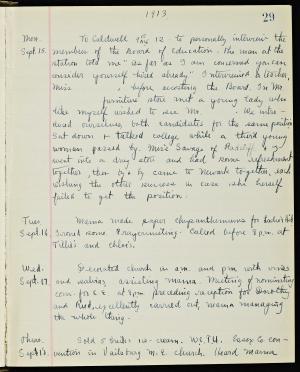 1913
29
Mon. Sept. 15. To Caldwell 9:12 to personally interview the
members of the Board of Education. The man at the
station told me "as far as I am concerned you can
consider yourself hired already." I interviewed a teacher,
Miss , before accosting the Board. In Mr.
furniture store met a young lady who
like myself wished to see Mr. We intro-
duced ourselves, both candidates for the same position
Sat down & talked college while a third young
woman passed by. Miss Savage of &
went into a drug store and had some refreshment
together, then by & by came to Newark together, each
wishing the other success in case she herself
failed to get the position.
Tues. Sept. 16. Mama made paper chrysanthemums for
Ironed some. Prayermeeting. Called before 8 p.m. at
Tillie's and Chloe's.
Wed. Sept. 17. Decorated church in a.m. and p.m. with vines
and assisting mama. Meeting of nominating
com. for at 8 pm preceding reception for Dorothy
and excellently carried out, mama managing
the whole thing.
Thurs. Sept 18. Sold ice-cream. W.C.T.U. Essex Co. con-
vention in Vailsburg M.E. church. Heard Mama